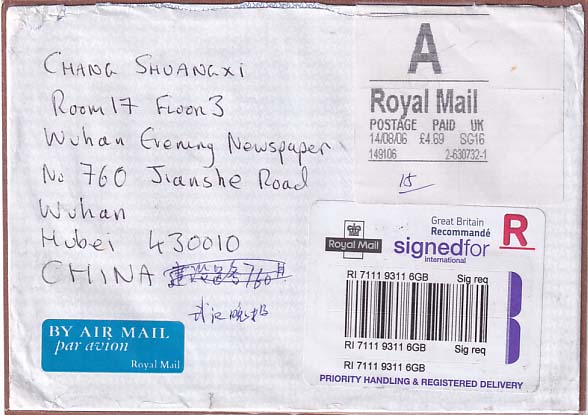 CHANG SHUANGXI
Room 17 Floor 3
Wuhan Evening Newspaper
No 760 Jianshe Road
Wuhan
Hubei 430010
CHINA
武汉晚报
BY AIR MAIL
par avion
Royal Mail
A
Royal Mail
POSTAGE PAID UK
14/08/06 £4.69 SG16
149106 2-630732-1
15
Royal Mail
Great Britain
Recommandé
signedfor
international
R
RI 7111 9311 6GB Sig req
RI 7111 9311 6GB Sig req
RI 7111 9311 6GB
PRIORITY HANDLING & REGISTERED DELIVERY